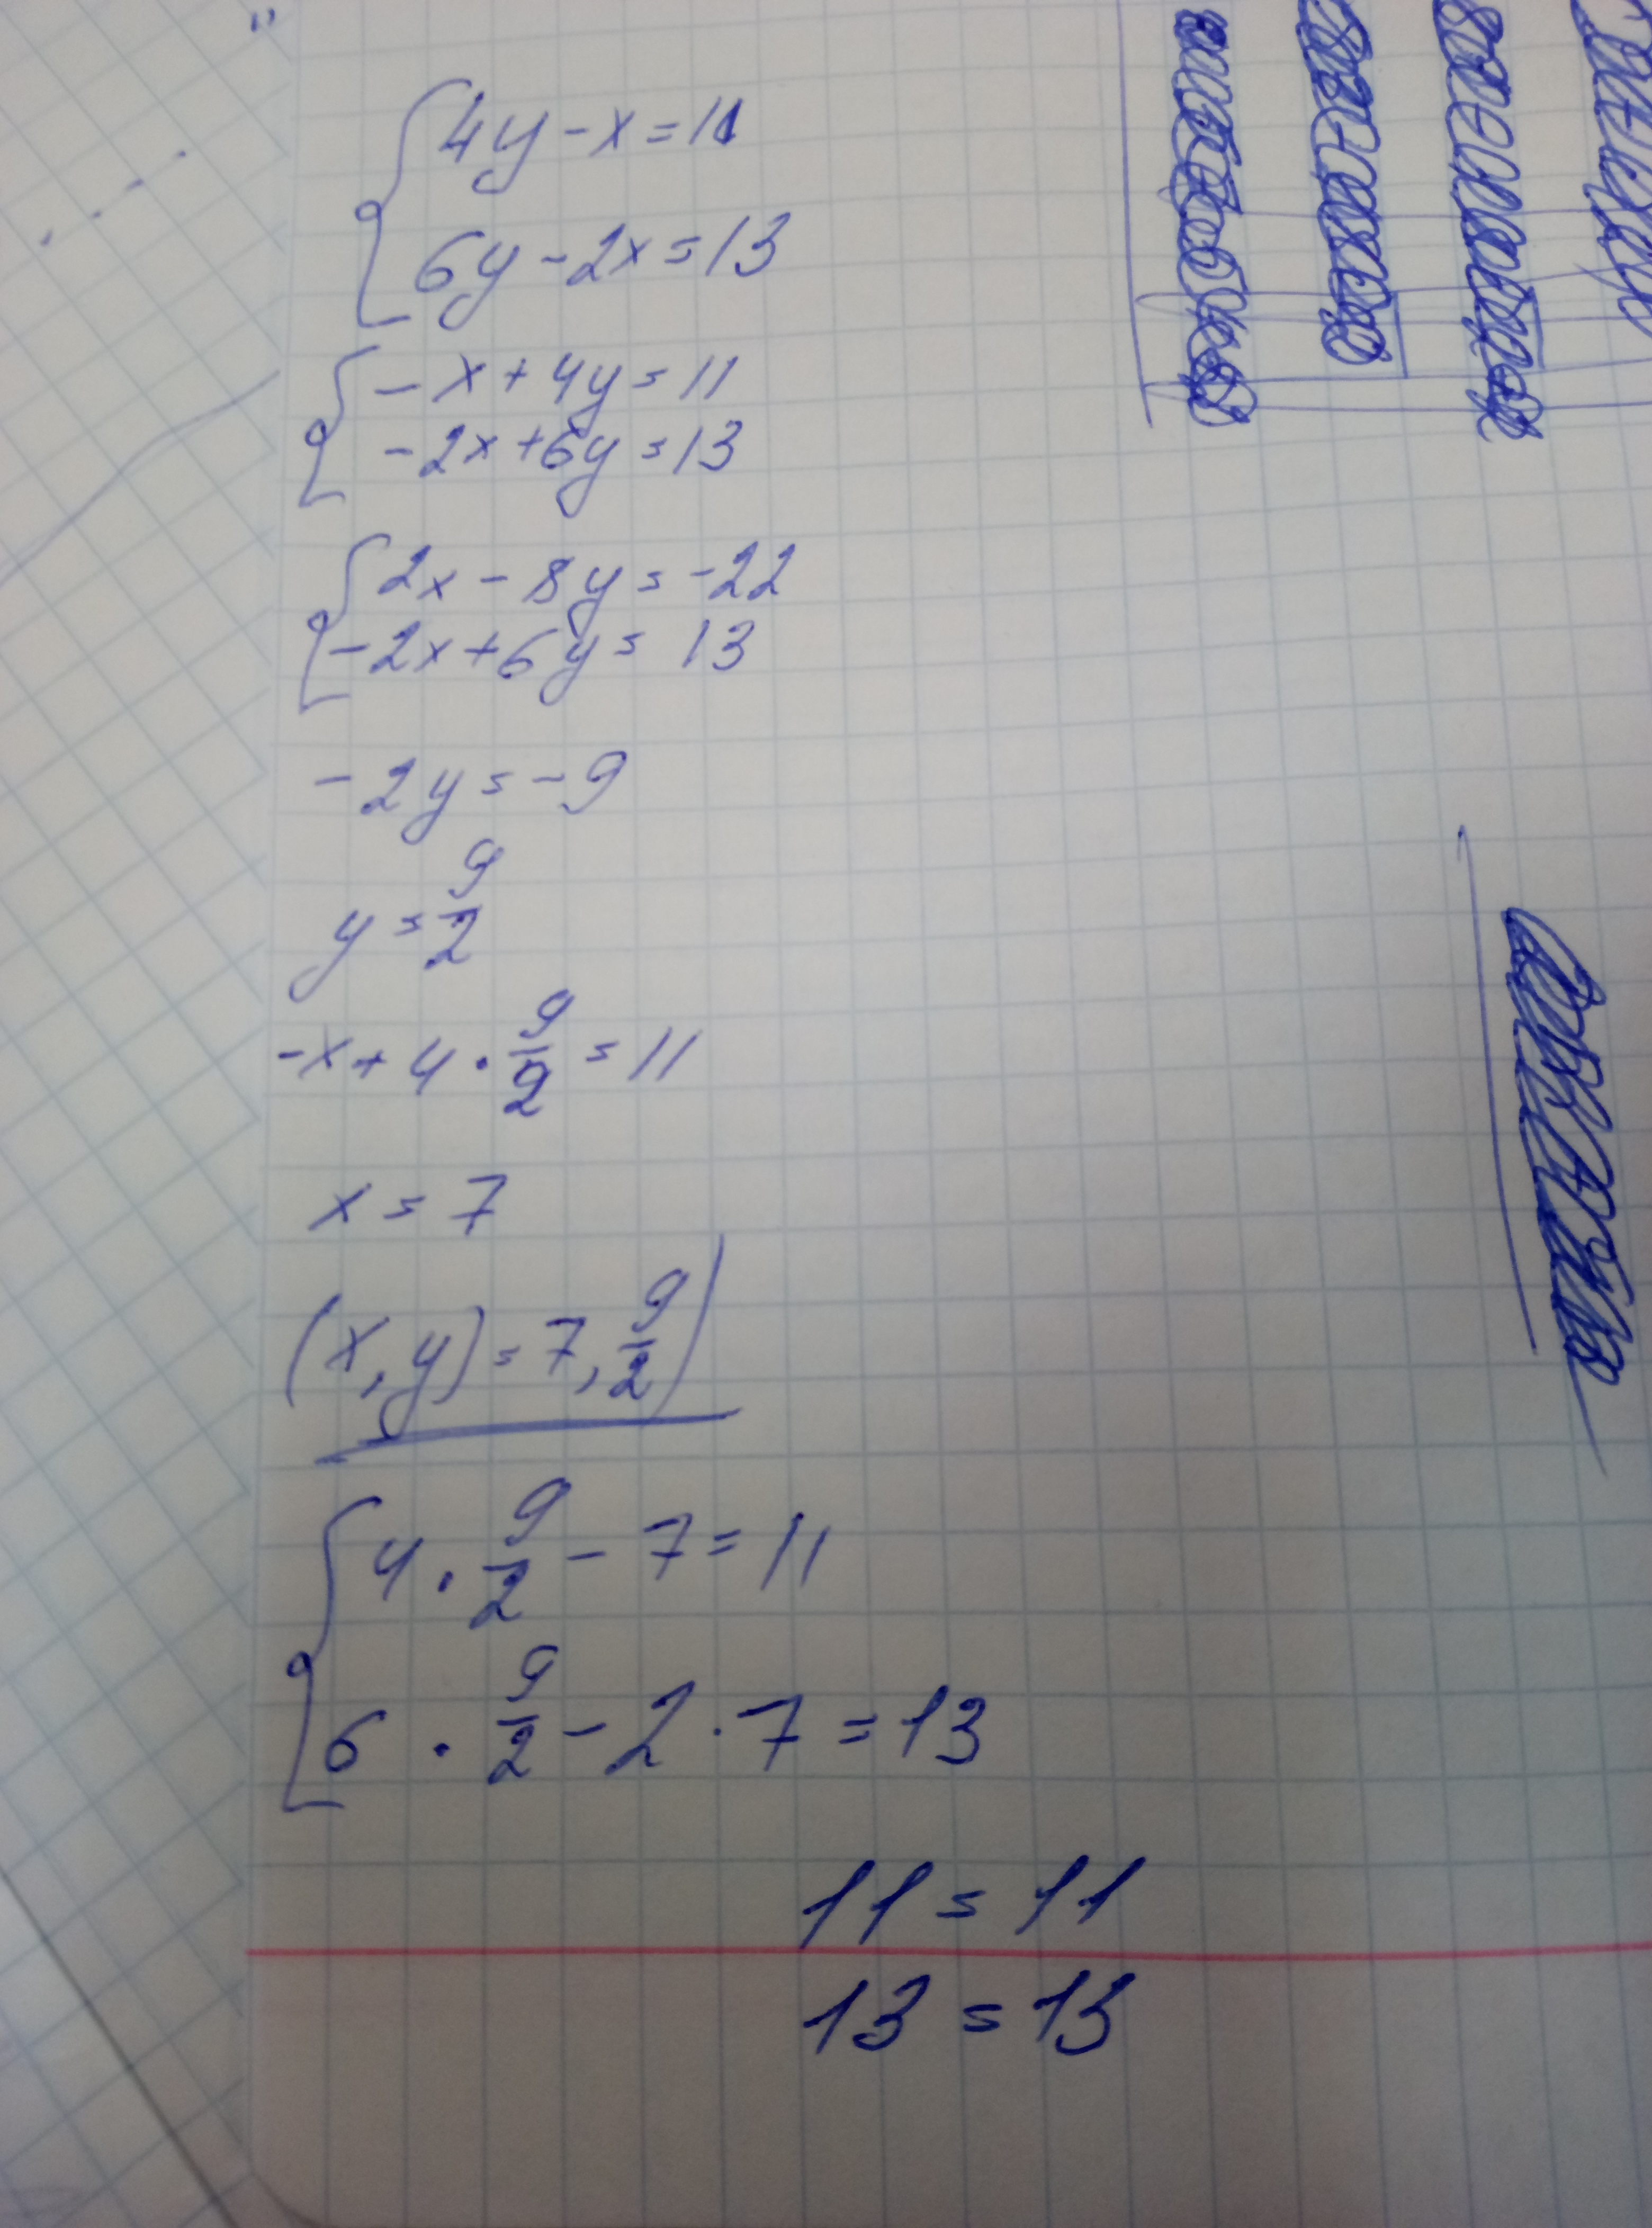 4y - x = 11
6y - 2x = 13
- x + 4y = 11
- 2x + 6y = 13
2x - 8y = -22
- 2x + 6y = 13
- 2y = - 9
y = 9/2
- x + 4 · 9/2 = 11
x = 7
(x, y) = 7, 9/2)
4 · 9/2 - 7 = 11
6 · 9/2 - 2 · 7 = 13
11 = 11
13 = 13